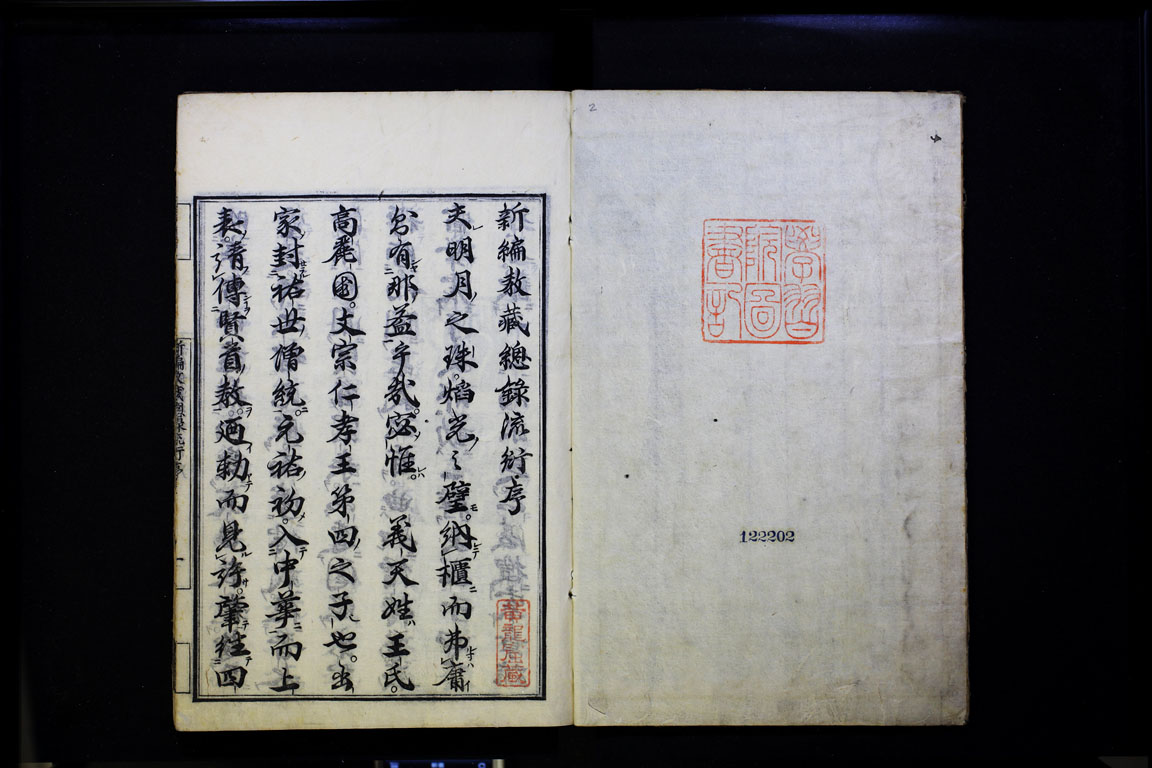 2
學習
院圖
書記
122202
新編教藏總錄流衍序
夫明月之珠焰光之璧納櫃而弗庸
曷有那益乎哉寔惟 義天姓王氏
高麗國文宗仁孝王第四之子也出
家封祐世僧統元祐初入中華而上
表請傳賢首教迺勅而見許肇往四